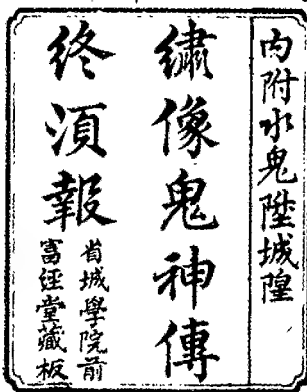 内附水鬼陞城隍
繡像鬼神傳
終須報
省城學院前
富經堂藏板